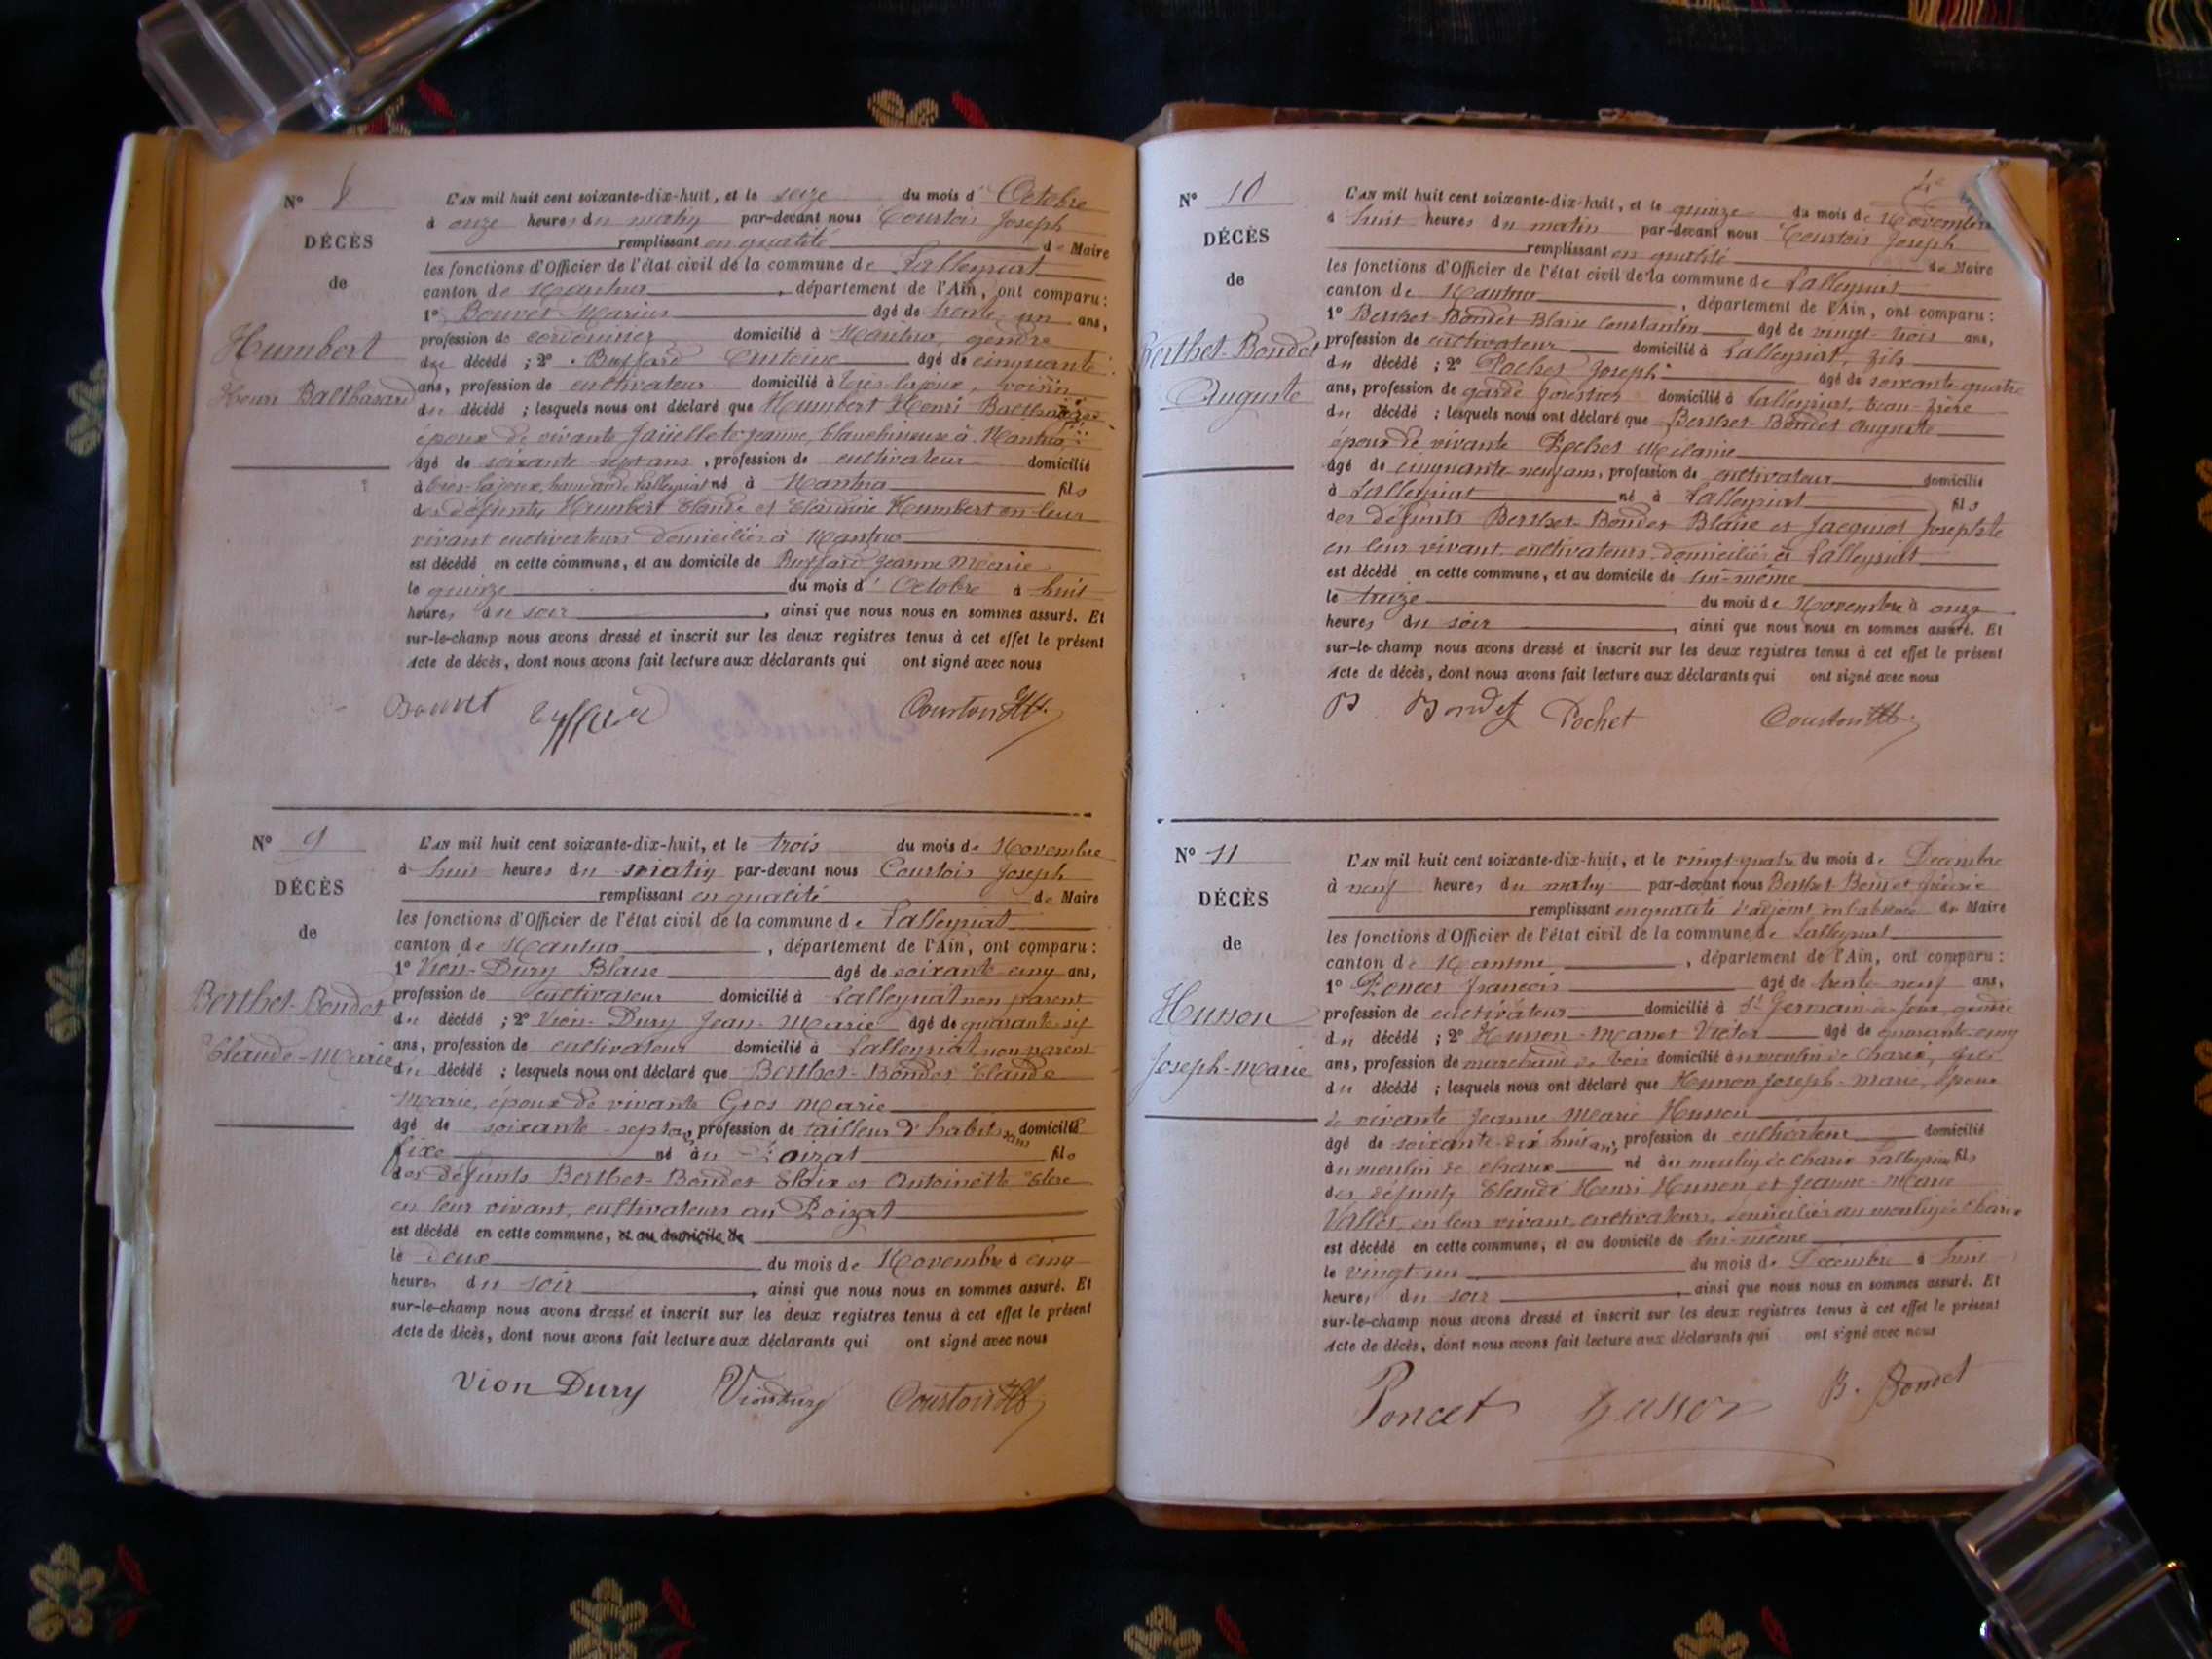 N° 8
DÉCÈS
de
Humbert
Henri Balthasard
L'AN mil huit cent soixante-dix-huit, et le seize du mois d' Octobre
à onze heures du matin par-devant nous Courtois Joseph
remplissant en qualité de Maire
les fonctions d'Officier de l'état civil de la commune de Lalleyriat
canton de Nantua, département de l'Ain, ont comparu :
1° Bouvet Marius âgé de trente un ans,
profession de cordonnier domicilié à Nantua, gendre
du décédé ; 2° Buffard Antoine âgé de cinquante
ans, profession de cultivateur domicilié à voisin
du décédé ; lesquels nous ont déclaré que Humbert Henri Balthazar
époux de vivante Jeanne, blanchisseuse à Nantua
âgé de soixante-sept ans, profession de cultivateur domicilié
à hameau de Lalleyriat né à Nantua fils
des défunts Humbert Claude et Claudine Humbert en leur
vivant cultivateurs domiciliés à Nantua
est décédé en cette commune, et au domicile de Buffard Jeanne Marie
le quinze du mois d' Octobre à huit
heures du soir, ainsi que nous nous en sommes assuré. Et
sur-le-champ nous avons dressé et inscrit sur les deux registres tenus à cet effet le présent
Acte de décès, dont nous avons fait lecture aux déclarants qui ont signé avec nous
Bouvet Buffard Courtois
N° 9
DÉCÈS
de
Berthet-Bondet
Claude-Marie
L'AN mil huit cent soixante-dix-huit, et le trois du mois de Novembre
à huit heures du matin par-devant nous Courtois Joseph
remplissant en qualité de Maire
les fonctions d'Officier de l'état civil de la commune de Lalleyriat
canton de Nantua, département de l'Ain, ont comparu :
1° Vion-Dury Blaise âgé de soixante cinq ans,
profession de cultivateur domicilié à Lalleyriat non parent
du décédé ; 2° Vion-Dury Jean-Marie âgé de quarante six
ans, profession de cultivateur domicilié à Lalleyriat non parent
du décédé ; lesquels nous ont déclaré que Berthet-Bondet Claude
Marie, époux de vivante Gros Marie
âgé de soixante-sept ans, profession de tailleur d'habits sans domicilié
fixe né au Poizat fils
des défunts Berthet-Bondet et Antoinette
en leur vivant, cultivateurs au Poizat
est décédé en cette commune, et au domicile de
le deux du mois de Novembre à cinq
heures du soir, ainsi que nous nous en sommes assuré. Et
sur-le-champ nous avons dressé et inscrit sur les deux registres tenus à cet effet le présent
Acte de décès, dont nous avons fait lecture aux déclarants qui ont signé avec nous
Vion Dury Viondury Courtois
N° 10
DÉCÈS
de
Berthet-Bondet
Auguste
L'AN mil huit cent soixante-dix-huit, et le quinze du mois de Novembre
à huit heures du matin par-devant nous Courtois Joseph
remplissant en qualité de Maire
les fonctions d'Officier de l'état civil de la commune de Lalleyriat
canton de Nantua, département de l'Ain, ont comparu :
1° Berthet-Bondet Blaise Constantin âgé de vingt-trois ans,
profession de cultivateur domicilié à Lalleyriat, fils
du décédé ; 2° Pochet Joseph âgé de soixante-quatre
ans, profession de garde forestier domicilié à Lalleyriat, beau-frère
du décédé ; lesquels nous ont déclaré que Berthet-Bondet Auguste
époux de vivante Pochet Mélanie
âgé de cinquante neuf ans, profession de cultivateur domicilié
à Lalleyriat né à Lalleyriat fils
des défunts Berthet-Bondet Blaise et Jacquiot Josephte
en leur vivant cultivateurs domiciliés à Lalleyriat
est décédé en cette commune, et au domicile de lui-même
le treize du mois de Novembre à onze
heures du soir, ainsi que nous nous en sommes assuré. Et
sur-le-champ nous avons dressé et inscrit sur les deux registres tenus à cet effet le présent
Acte de décès, dont nous avons fait lecture aux déclarants qui ont signé avec nous
B Bondet Pochet Courtois
N° 11
DÉCÈS
de
Husson
Joseph-Marie
L'AN mil huit cent soixante-dix-huit, et le vingt-quatre du mois de Décembre
à neuf heures du matin par-devant nous Berthet-Bondet
remplissant en qualité d'adjoint en l'absence du Maire
les fonctions d'Officier de l'état civil de la commune de Lalleyriat
canton de Nantua, département de l'Ain, ont comparu :
1° Poncet François âgé de trente neuf ans,
profession de cultivateur domicilié à St Germain de Joux, gendre
du décédé ; 2° Husson-Manet Victor âgé de quarante-cinq
ans, profession de marchand de bois domicilié au moulin de Charix, fils
du décédé ; lesquels nous ont déclaré que Husson Joseph-Marie, époux
de vivante Jeanne Marie Husson
âgé de soixante-dix huit ans, profession de cultivateur domicilié
au moulin de Charix né au moulin de Charix Lalleyriat fils
des défunts Claude Henri Husson et Jeanne-Marie
Vallet, en leur vivant, cultivateurs, domiciliés au moulin de Charix
est décédé en cette commune, et au domicile de lui-même
le vingt-un du mois de Décembre à huit
heures du soir, ainsi que nous nous en sommes assuré. Et
sur-le-champ nous avons dressé et inscrit sur les deux registres tenus à cet effet le présent
Acte de décès, dont nous avons fait lecture aux déclarants qui ont signé avec nous
Poncet husson B. Bondet